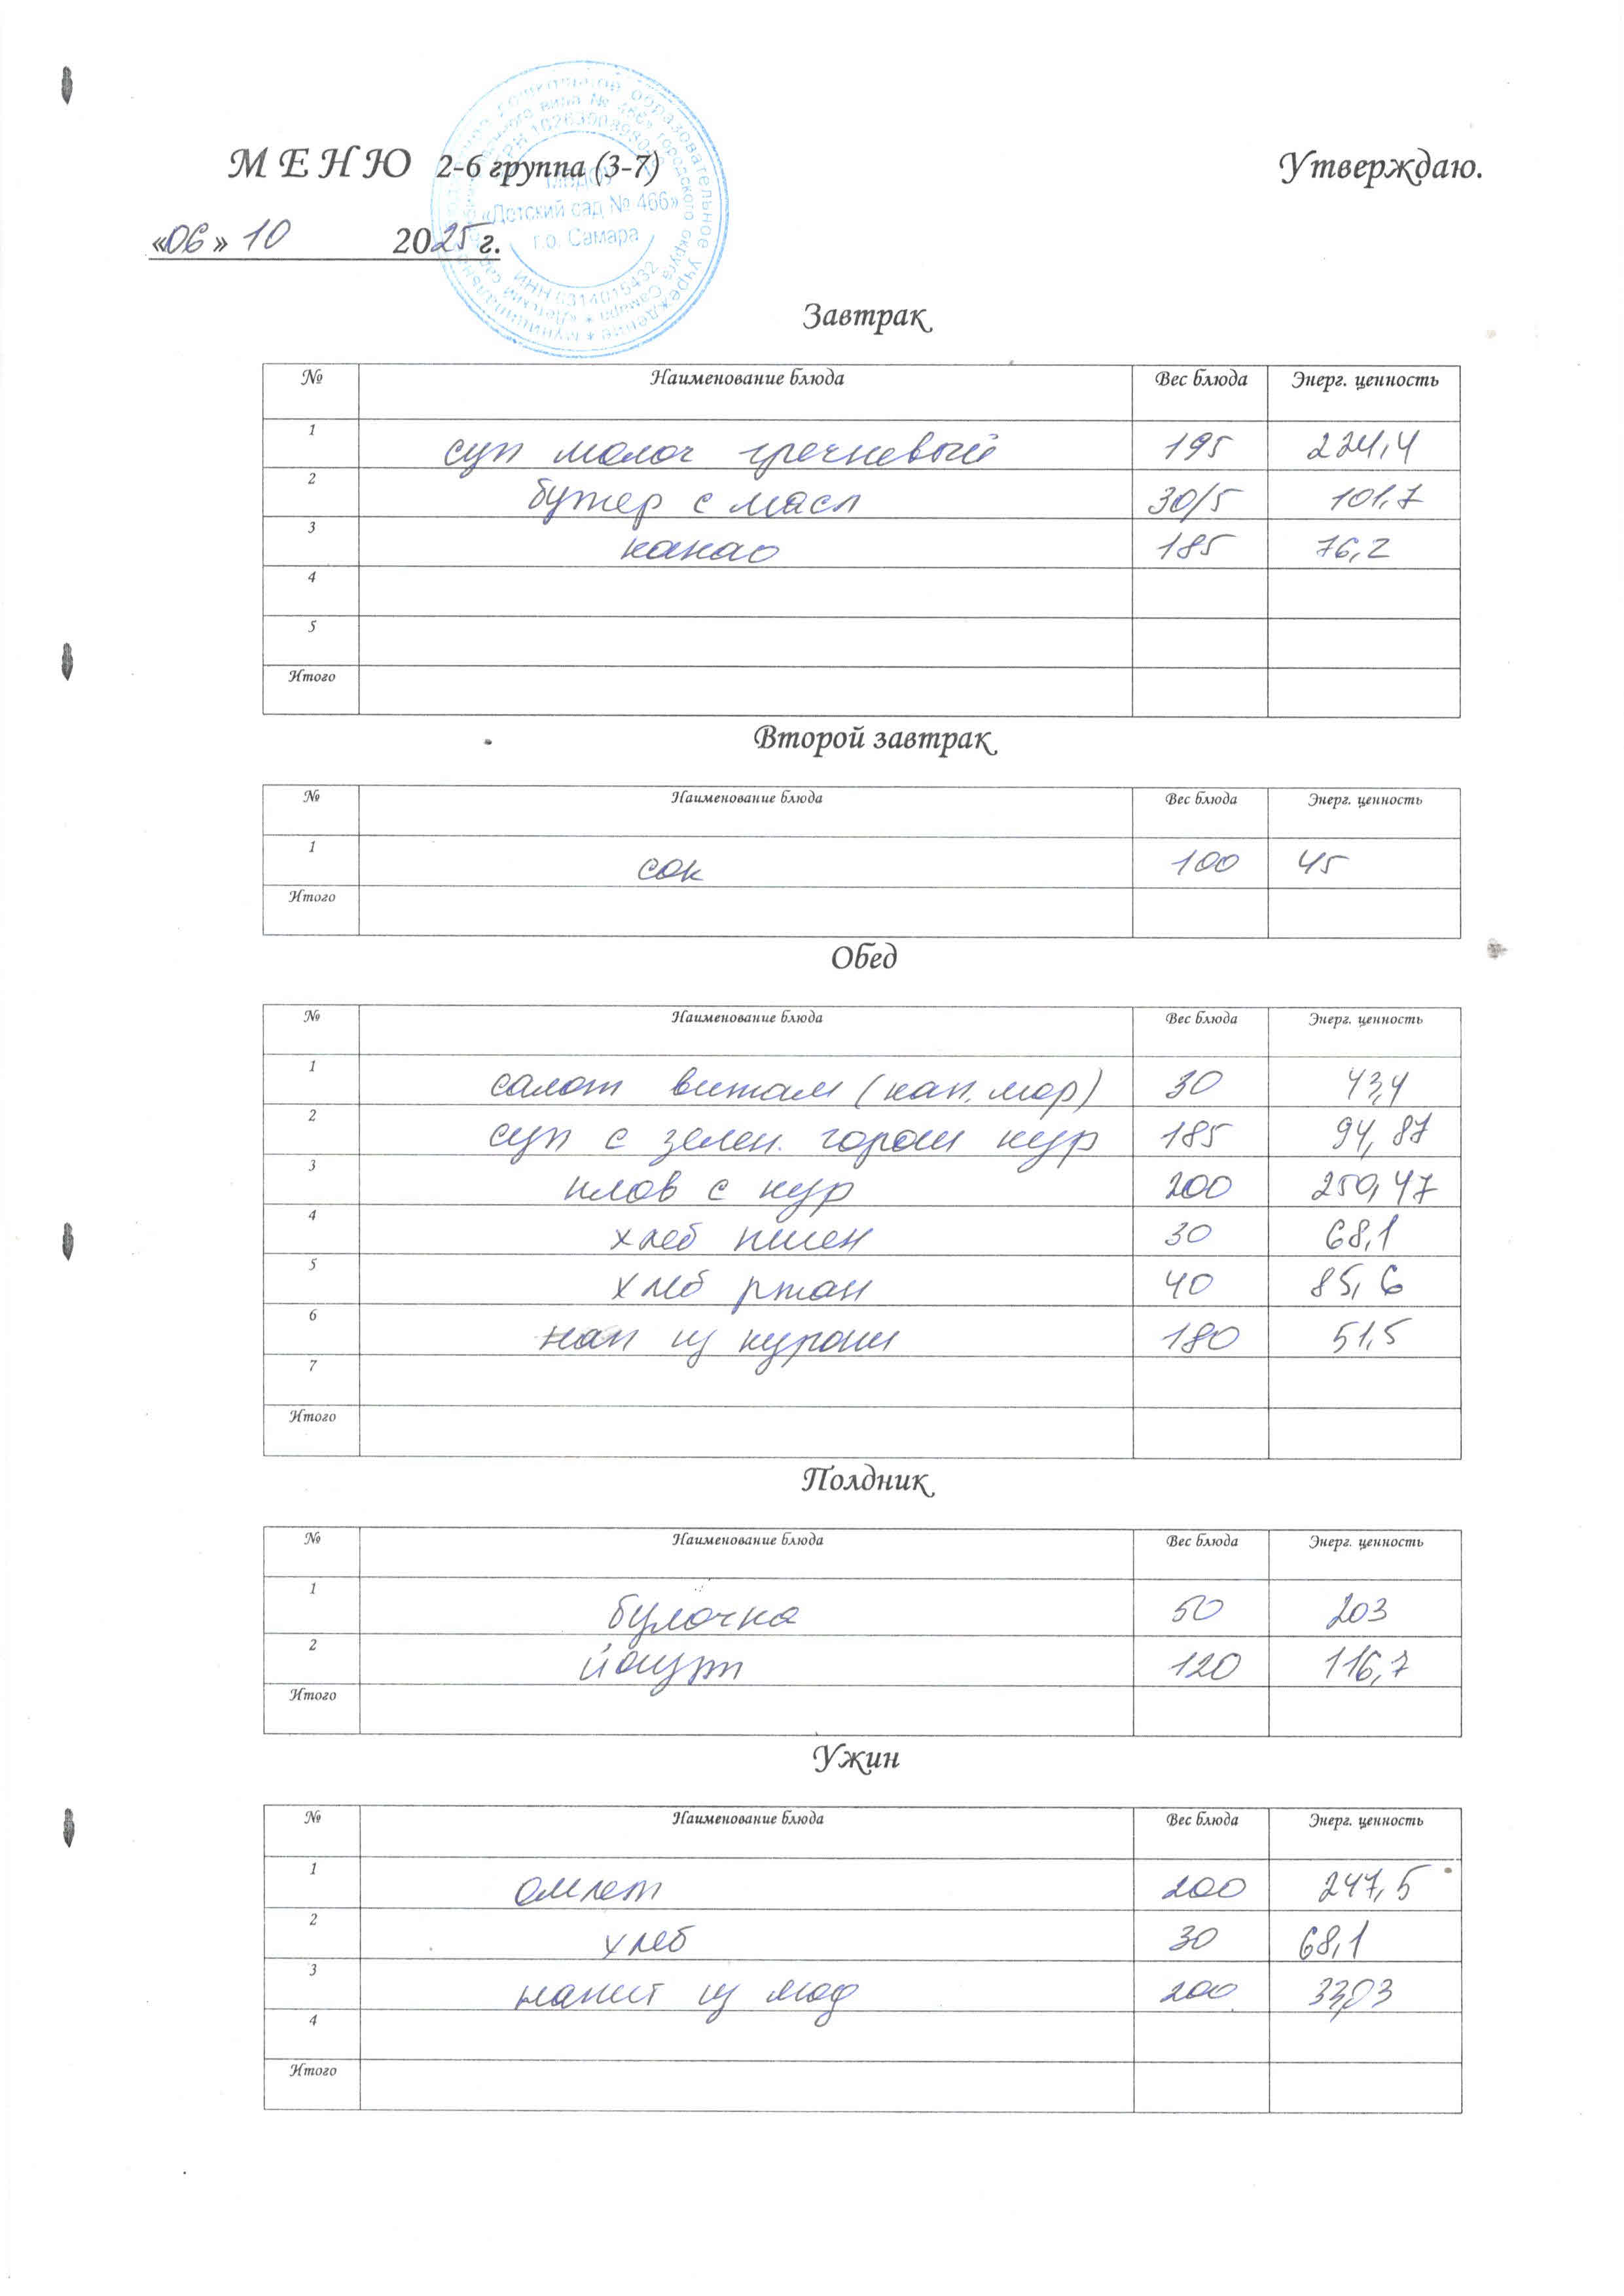 М Е Н Ю 2-6 группа (3-7) Утверждаю.
«06» 10 2025 г.
«Детский сад № 466»
г.о. Самара
ИНН 6314015432
Завтрак
№ Наименование блюда Вес блюда Энерг. ценность
1 суп молоч гречневый 195 224,4
2 бутер с масл 30/5 101,7
3 какао 185 76,2
4
5
Итого
Второй завтрак
№ Наименование блюда Вес блюда Энерг. ценность
1 сок 100 45
Итого
Обед
№ Наименование блюда Вес блюда Энерг. ценность
1 салат витам (кап. мор) 30 43,4
2 суп с зелен. горош кур 185 94,87
3 плов с кур 200 250,47
4 хлеб пшен 30 68,1
5 хлеб ржан 40 85,6
6 нап из кураги 180 51,5
7
Итого
Полдник
№ Наименование блюда Вес блюда Энерг. ценность
1 булочка 50 203
2 йогурт 120 116,7
Итого
Ужин
№ Наименование блюда Вес блюда Энерг. ценность
1 омлет 200 247,5
2 хлеб 30 68,1
3 из 200 33,03
4
Итого